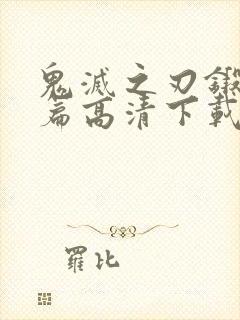 鬼滅之刃鍛
篇高清下載
羅比